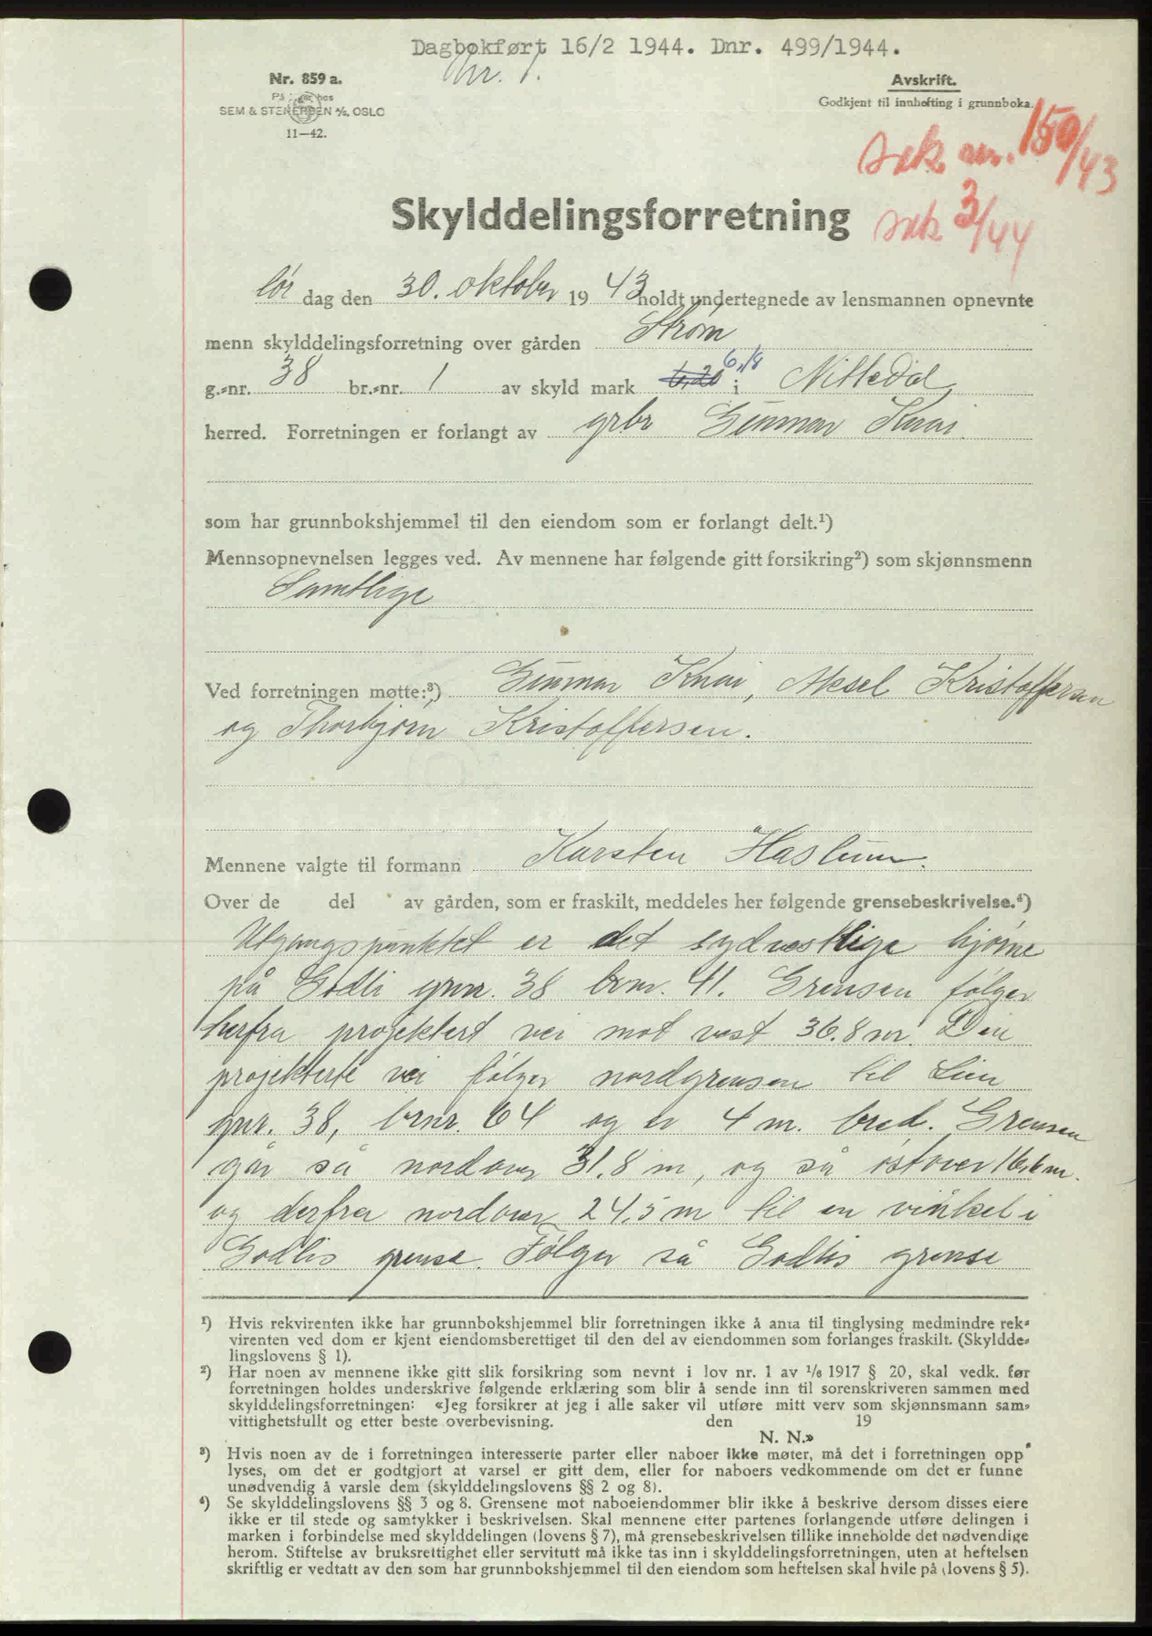 Dagbokført 16/2 1944. Dnr. 499/1944.
Nr. 1.
Nr. 859 a.
På lager hos
SEM & STENERSEN A/S, OSLO
11—42.
Avskrift.
Godkjent til innhefting i grunnboka.
sak nr. 150/43
sak 3/44
Skylddelingsforretning
lør dag den 30. oktober 1943 holdt undertegnede av lensmannen opnevnte
menn skylddelingsforretning over gården Strøm
g.-nr. 38 br.-nr. 1 av skyld mark 6,20 6,18 i Nittedal
herred. Forretningen er forlangt av grbr Gunnar Knai.
som har grunnbokshjemmel til den eiendom som er forlangt delt.¹)
Mennsopnevnelsen legges ved. Av mennene har følgende gitt forsikring²) som skjønnsmenn
Samtlige
Ved forretningen møtte:³) Gunnar Knai, Aksel Kristoffersen
og Thorbjørn Kristoffersen.
Mennene valgte til formann Karsten Haslum.
Over de del av gården, som er fraskilt, meddeles her følgende grensebeskrivelse.⁴)
Utgangspunktet er det sydvestlige hjørne
på Godli gnr. 38 brnr. 41. Grensen følger
herfra projektert vei mot vest 36.8 m. Den
projekterte vei følger nordgrensen til Lien
gnr. 38, brnr. 64 og er 4 m. bred. Grensen
går så nordover 31.8 m, og så østover 16,6 m.
og derfra nordover 24,5 m til en vinkel i
Godlis grense. Følger så Godlis grense
¹) Hvis rekvirenten ikke har grunnbokshjemmel blir forretningen ikke å anta til tinglysing medmindre rek-
virenten ved dom er kjent eiendomsberettiget til den del av eiendommen som forlanges fraskilt. (Skyldde-
lingslovens § 1).
²) Har noen av mennene ikke gitt slik forsikring som nevnt i lov nr. 1 av 1/6 1917 § 20, skal vedk. før
forretningen holdes underskrive følgende erklæring som blir å sende inn til sorenskriveren sammen med
skylddelingsforretningen: «Jeg forsikrer at jeg i alle saker vil utføre mitt verv som skjønnsmann sam-
vittighetsfullt og etter beste overbevisning. den 19
N. N.»
³) Hvis noen av de i forretningen interesserte parter eller naboer ikke møter, må det i forretningen opp
lyses, om det er godtgjort at varsel er gitt dem, eller for naboers vedkommende om det er funne
unødvendig å varsle dem (skylddelingslovens §§ 2 og 8).
⁴) Se skylddelingslovens §§ 3 og 8. Grensene mot naboeiendommer blir ikke å beskrive dersom disses eiere
ikke er til stede og samtykker i beskrivelsen. Skal mennene etter partenes forlangende utføre delingen i
marken i forbindelse med skylddelingen (lovens § 7), må grensebeskrivelsen tillike inneholde det nødvendige
herom. Stiftelse av bruksrettighet eller servitutt må ikke tas inn i skylddelingsforretningen, uten at heftelsen
skriftlig er vedtatt av den som har grunnbokshjemmel til den eiendom som heftelsen skal hvile på (lovens § 5).